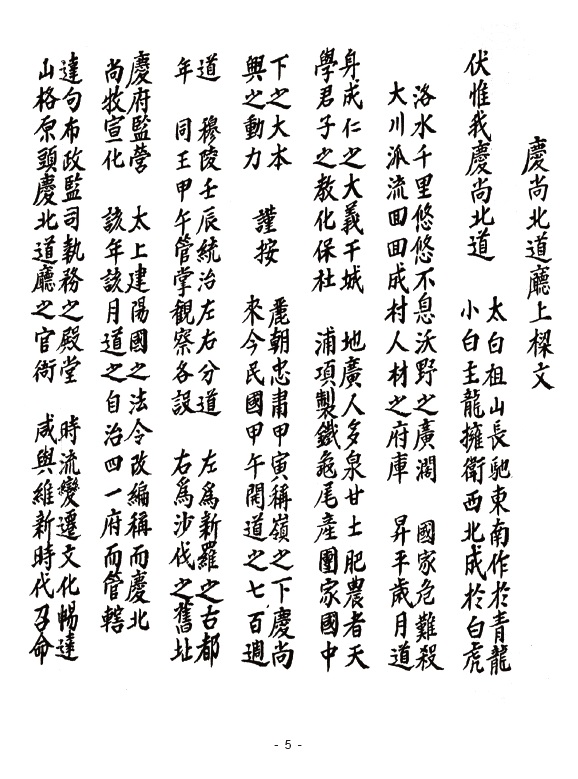 慶尚北道廳上樑文
伏惟我慶尚北道
太白祖山長馳東南作於青龍
小白主龍擁衛西北成於白虎
洛水千里悠悠不息沃野之廣濶 國家危難殺
大川派流回回成村人材之府庫 昇平歲月道
身成仁之大義干城 地廣人多泉甘土肥農者天
學君子之教化保社 浦項製鐵龜尾産團家國中
下之大本
興之動力
謹按
麗朝忠肅甲寅稱嶺之下慶尚
來今民國甲午開道之七百週
道 穆陵壬辰統治左右分道 左為新羅之古都
年 同王甲午管掌觀察各設 右為沙伐之舊址
慶府監營 太上建陽國之法令改編稱而慶北
尚牧宣化 該年該月道之自治四一府而管轄
達句布政監司執務之殿堂 時流變遷文化暢達
山格原頭慶北道廳之官衙 咸與維新時代召命
- 5 -